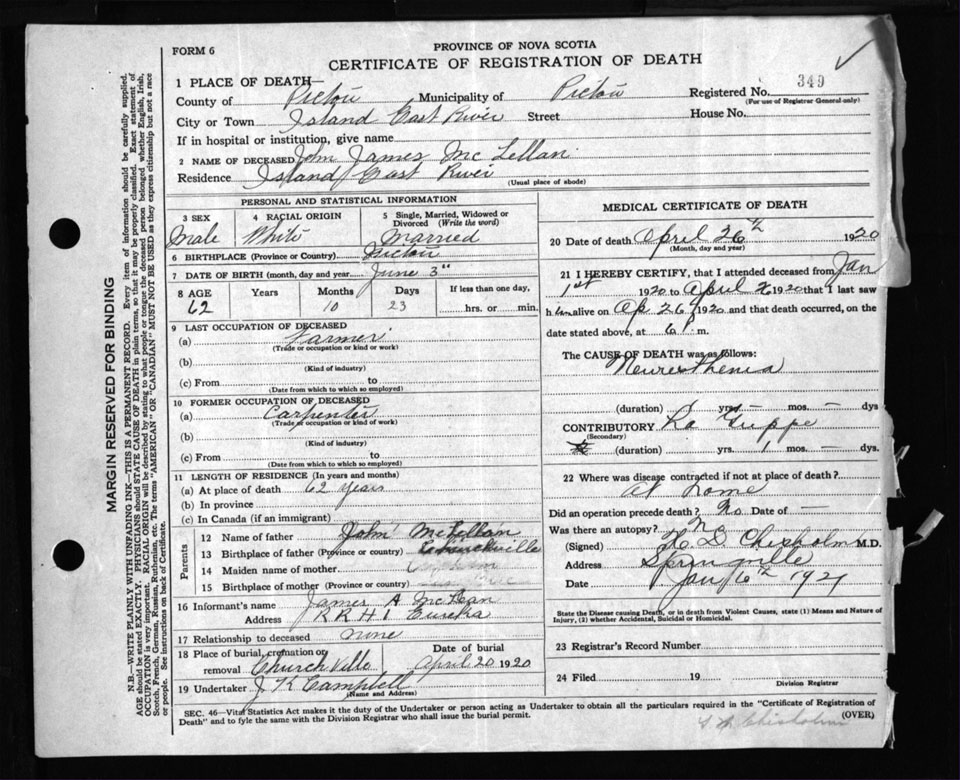 FORM 6
PROVINCE OF NOVA SCOTIA
CERTIFICATE OF REGISTRATION OF DEATH
349
1 PLACE OF DEATH—
County of Pictou Municipality of Pictou Registered No.
(For use of Registrar General only)
City or Town Island East River Street House No.
If in hospital or institution, give name
2 NAME OF DECEASED John James McLellan
Residence Island East River
(Usual place of abode)
PERSONAL AND STATISTICAL INFORMATION
3 SEX 4 RACIAL ORIGIN 5 Single, Married, Widowed or Divorced (Write the word)
Male White Married
6 BIRTHPLACE (Province or Country) Pictou
7 DATE OF BIRTH (month, day and year) June 3
8 AGE Years Months Days If less than one day,
62 10 23 hrs. or min.
9 LAST OCCUPATION OF DECEASED
(a) Farmer
(Trade or occupation or kind or work)
(b)
(Kind of industry)
(c) From to
(Date from which to which so employed)
10 FORMER OCCUPATION OF DECEASED
(a) Carpenter
(Trade or occupation or kind of work)
(b)
(Kind of industry)
(c) From to
(Date from which to which so employed)
11 LENGTH OF RESIDENCE (In years and months)
(a) At place of death 62 years
(b) In province
(c) In Canada (if an immigrant)
Parents
12 Name of father John McLellan
13 Birthplace of father (Province or country)
14 Maiden name of mother
15 Birthplace of mother (Province or country)
16 Informant's name James A McLean
Address RR #1 Eureka
17 Relationship to deceased none
18 Place of burial, cremation or removal Date of burial
Churchville April 20 1920
19 Undertaker J K Campbell
(Name and Address)
MEDICAL CERTIFICATE OF DEATH
20 Date of death April 26th 1920
(Month, day and year)
21 I HEREBY CERTIFY, that I attended deceased from Jan
1st 1920 to April 26 1920 that I last saw
h im alive on Ap 26 1920 and that death occurred, on the
date stated above, at 6 P m.
The CAUSE OF DEATH was as follows:
Neuresthenia
(duration) yrs. mos. — dys
CONTRIBUTORY La Grippe
(Secondary)
(duration) yrs. 1 mos. dys
22 Where was disease contracted if not at place of death?
At home
Did an operation precede death? No Date of —
Was there an autopsy? N
(Signed) H. D. Chisholm M.D.
Address Springville
Date Jan 6th 1921
State the Disease causing Death, or in death from Violent Causes, state (1) Means and Nature of
Injury, (2) whether Accidental, Suicidal or Homicidal.
23 Registrar's Record Number
24 Filed 19
Division Registrar
SEC. 46—Vital Statistics Act makes it the duty of the Undertaker or person acting as Undertaker to obtain all the particulars required in the "Certificate of Registration of
Death" and to fyle the same with the Division Registrar who shall issue the burial permit.
(OVER)
Chisholm
MARGIN RESERVED FOR BINDING
N.B.—WRITE PLAINLY WITH UNFADING INK—THIS IS A PERMANENT RECORD. Every item of information should be carefully supplied.
AGE should be stated EXACTLY. PHYSICIANS should STATE CAUSE OF DEATH in plain terms, so that it may be properly classified. Exact statement of
OCCUPATION is very important. RACIAL ORIGIN will be described by stating to what people or tongue the deceased person belonged whether English, Irish,
Scotch, French, German, Russian, Ruthenian, etc. The terms "AMERICAN" OR "CANADIAN" MUST NOT BE USED as they express citizenship but not a race
or people. See instructions on back of Certificate.